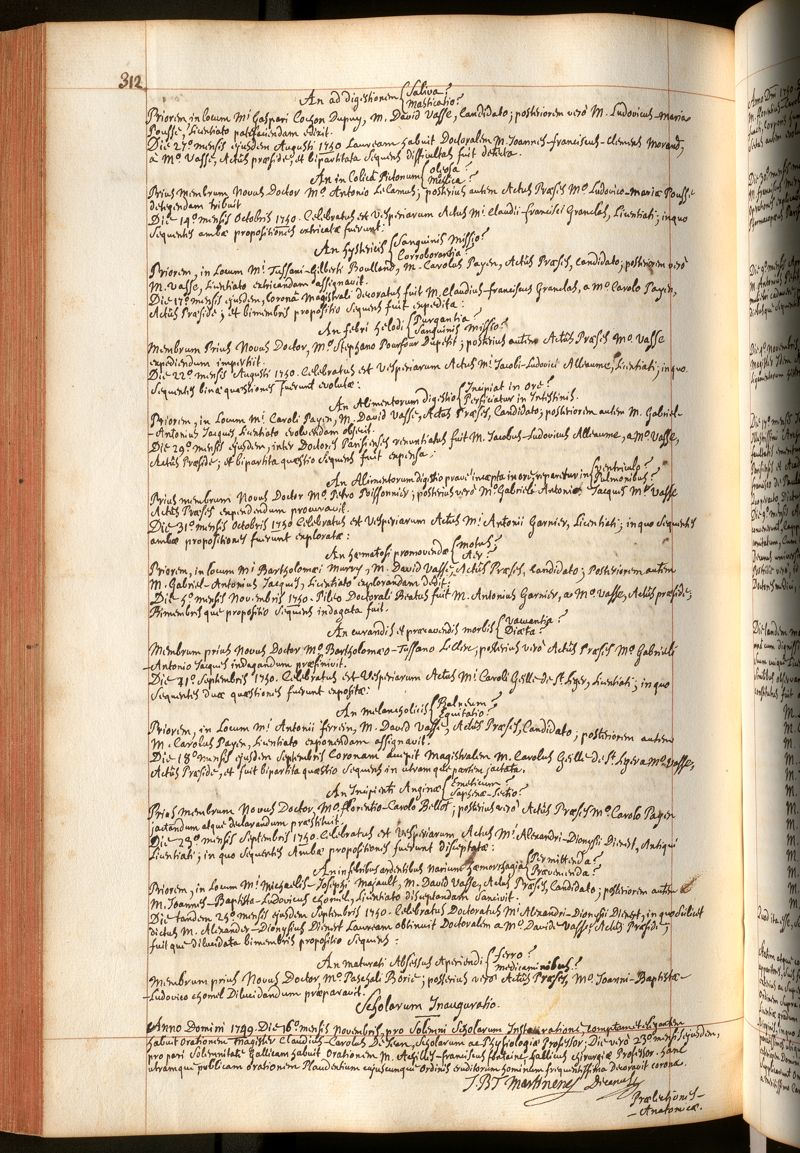 312
An ad digestionem { Saliva?
Masticatio?
Priorem in locum Mi Gaspari Cochon Dupuy, M. David Vasse, Candidato; posteriorem verò M. Ludovicus-Maria
Pousse, Licentiato patefaciendam edixit.
Die 27o mensis ejusdem Augusti 1750 Lauream habuit Doctoralem M. Joannes-franciscus-Clemens Morand,
a Mo Vasse, Actûs præside, et bipartita Sequens difficultas fuit detecta.
An in Colica Pictonum { oleosa?
Mellica?
Prius membrum Novus Doctor Mo Antonio LeCamus; posterius autem Actus Præses Mo Ludovico-Mariæ Pousse
detegendam tribuit
Die 14o mensis Octobris 1750. Celebratus est Vesperiarum Actus Mi Claudii-francisci Granclas, Licentiati; in quo
Sequentes ambæ propositiones extricatæ fuerunt:
An hystericis { Sanguinis Missio?
Corroborantia?
Priorem, in Locum Mi Tussani-Gilberti Boulland, M. Carolus Payen, Actûs Præses, Candidato; posteriorem verò
M. Vasse, Licentiato extricandam assignavit.
Die 17o mensis ejusdem, Coronâ Magistrali decoratus fuit M. Claudius-franciscus Granclas, a Mo Carolo Payen,
Actûs Præside; et bimembris propositio Sequens fuit expedita:
An febri helodi { Purgantia?
Sanguinis Missio?
Membrum Prius Novus Doctor, Mo Stephano Pourfour Dupetit; posterius autem Actûs Præses Mo Vasse
expediendum impertiit.
Die 22o mensis Augusti 1750 Celebratus est Vesperiarum Actus Mi Jacobi-Ludovici Alleaume, Licentiati; in quo
Sequentes binæ quæstiones fuerunt evolutæ:
An Alimentorum digestio { Incipiat in ore?
Perficiatur in Intestinis.
Priorem, in Locum Mi Caroli Payen, M. David Vasse, Actûs Præses, Candidato; posteriorem autem M. Gabriel-
-Antonius Jacques Licentiato evolvendam objecit.
Die 29o mensis ejusdem, inter Doctores Parisienses renuntiatus fuit M. Jacobus-Ludovicus Alleaume, a Mo Vasse,
Actûs Præside; et bipartita quæstio Sequens fuit expensa:
An Alimentorum digestio pravè incæpta in ore, reparetur in { Ventriculo?
Pulmonibus?
Prius membrum Novus Doctor Mo Petro Poissonnier; posterius verò Mo Gabrieli Antonio Jacques Ms Vasse
Actûs Præses expendendum procuravit.
Die 31o mensis Octobris 1750 Celebratus est Vesperiarum Actus Mi Antonii Garnier, Licentiati; in quo Sequentes
ambæ propositiones fuerunt exploratæ:
An hæmatosi promovendæ { motus?
Aer?
Priorem, in locum Mi Bartholomæi Murry, M. David Vasse, Actûs Præses, Candidato; Posteriorem autem
M. Gabriel-Antonius Jacques, Licentiato explorandam dedit;
Die 5o mensis Novembris 1750. Pileo Doctorali Beatus fuit M. Antonius Garnier, a Mo Vasse, Actûs præside;
Bimembris que propositio Sequens indagata fuit.
An curandis et præcavendis morbis { Vacuantia?
Diæta?
Membrum prius Novus Doctor Mo Bartholomæo-Tussano LeClerc; posterius verò Actûs Præses Mo Gabrieli
Antonio Jacques indagandum præfinivit.
Die 11o Septembris 1750. Celebratus est Vesperiarum Actus Mi Caroli Gelle de St Leger, Licentiati; in quo
Sequentes duæ quæstiones fuerunt expositæ:
An melancholicis { Balneum?
Equitatio?
Priorem, in Locum Mi Antonii ferrein, M. David Vasse, Actûs Præses, Candidato; posteriorem autem
M. Carolus Payen, Licentiato exponendam assignavit.
Die 18o mensis ejusdem Septembris Coronam accepit Magistralem M. Carolus Gelle de St Leger a Mo Vasse,
Actûs Præside, et fuit bipartita quæstio Sequens in utramque partem jactata.
An Incipienti Anginæ { Emeticum?
Saphenæ-Sectio?
Prius membrum Novus Doctor, Mo florentio-Carolo Bellot; posterius verò Actûs Præses Mo Carolo Payen
jactandum atque declarandum præstituit.
Die 23o mensis Septembris 1750. Celebratus est Vesperiarum Actus Mi Alexandri-Dionysii Dienert, Antiqui
Licentiati; in quo Sequentes Ambæ propositiones fuerunt disceptatæ:
An in febribus ardentibus Narium hæmorrhagia { Permittenda?
Prævenienda?
Priorem, in Locum Mi Michaelis-Josephi Majault, M. David Vasse, Actus Præses, Candidato; posteriorem autem
M. Joannes-Baptista-Ludovicus Chomel, Licentiato disceptandam Sanxivit.
Die tandem 25o mensis ejusdem Septembris 1750. Celebratus Doctoratus Mi Alexandri-Dionysii Dienert, in quo Scilicet
dictus M. Alexander-Dionysius Dienert Lauream obtinuit Doctoralem a Mo Davide Vasse, Actûs Præside,
fuit que dilucidata bimembris propositio Sequens:
An maturati Abscessus Aperiendi { ferro?
medicaminibus?
Membrum prius Novus Doctor, Mo Paschali Borie; posterius verò Actûs Præses, Mo Joanni-Baptistæ-
-Ludovico Chomel Dilucidandum præparavit.
Scholarum Inauguratio.
Anno Domini 1749. Die 16o mensis Novembris, pro Solemni Scholarum Instauratione comptam et elegantem
habuit orationem Magister Claudius-Carolus De Jean, Scholarum ac Physiologiæ Professor; Die verò 23o mensis ejusdem,
pro pari Solemnitate Gallicam habuit orationem M. Achilles-franciscus fontaine, Gallicus Chirurgiæ Professor. hanc
utramque publicam orationem Plaudentium cujuscunque Ordinis eruditorum hominum frequentissima decoravit corona.
J. B. T. Martinenq Decanus
Prælectiones-
-Anatomicæ.